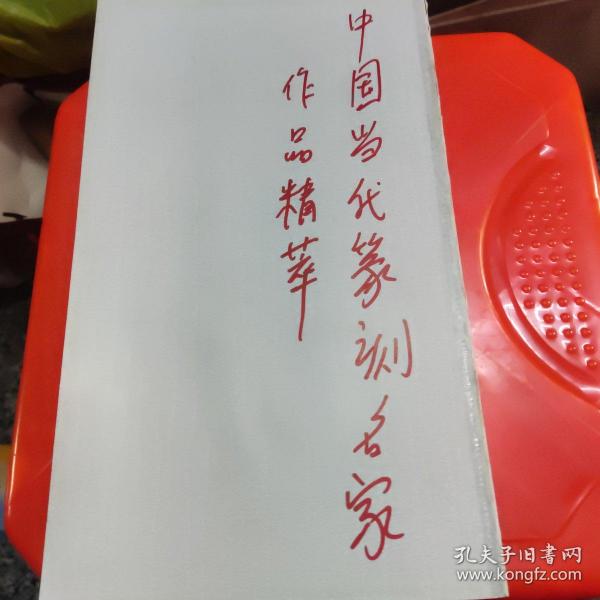 中国当代篆刻名家
作品精萃
孔夫子旧書网
www.kongfz.com